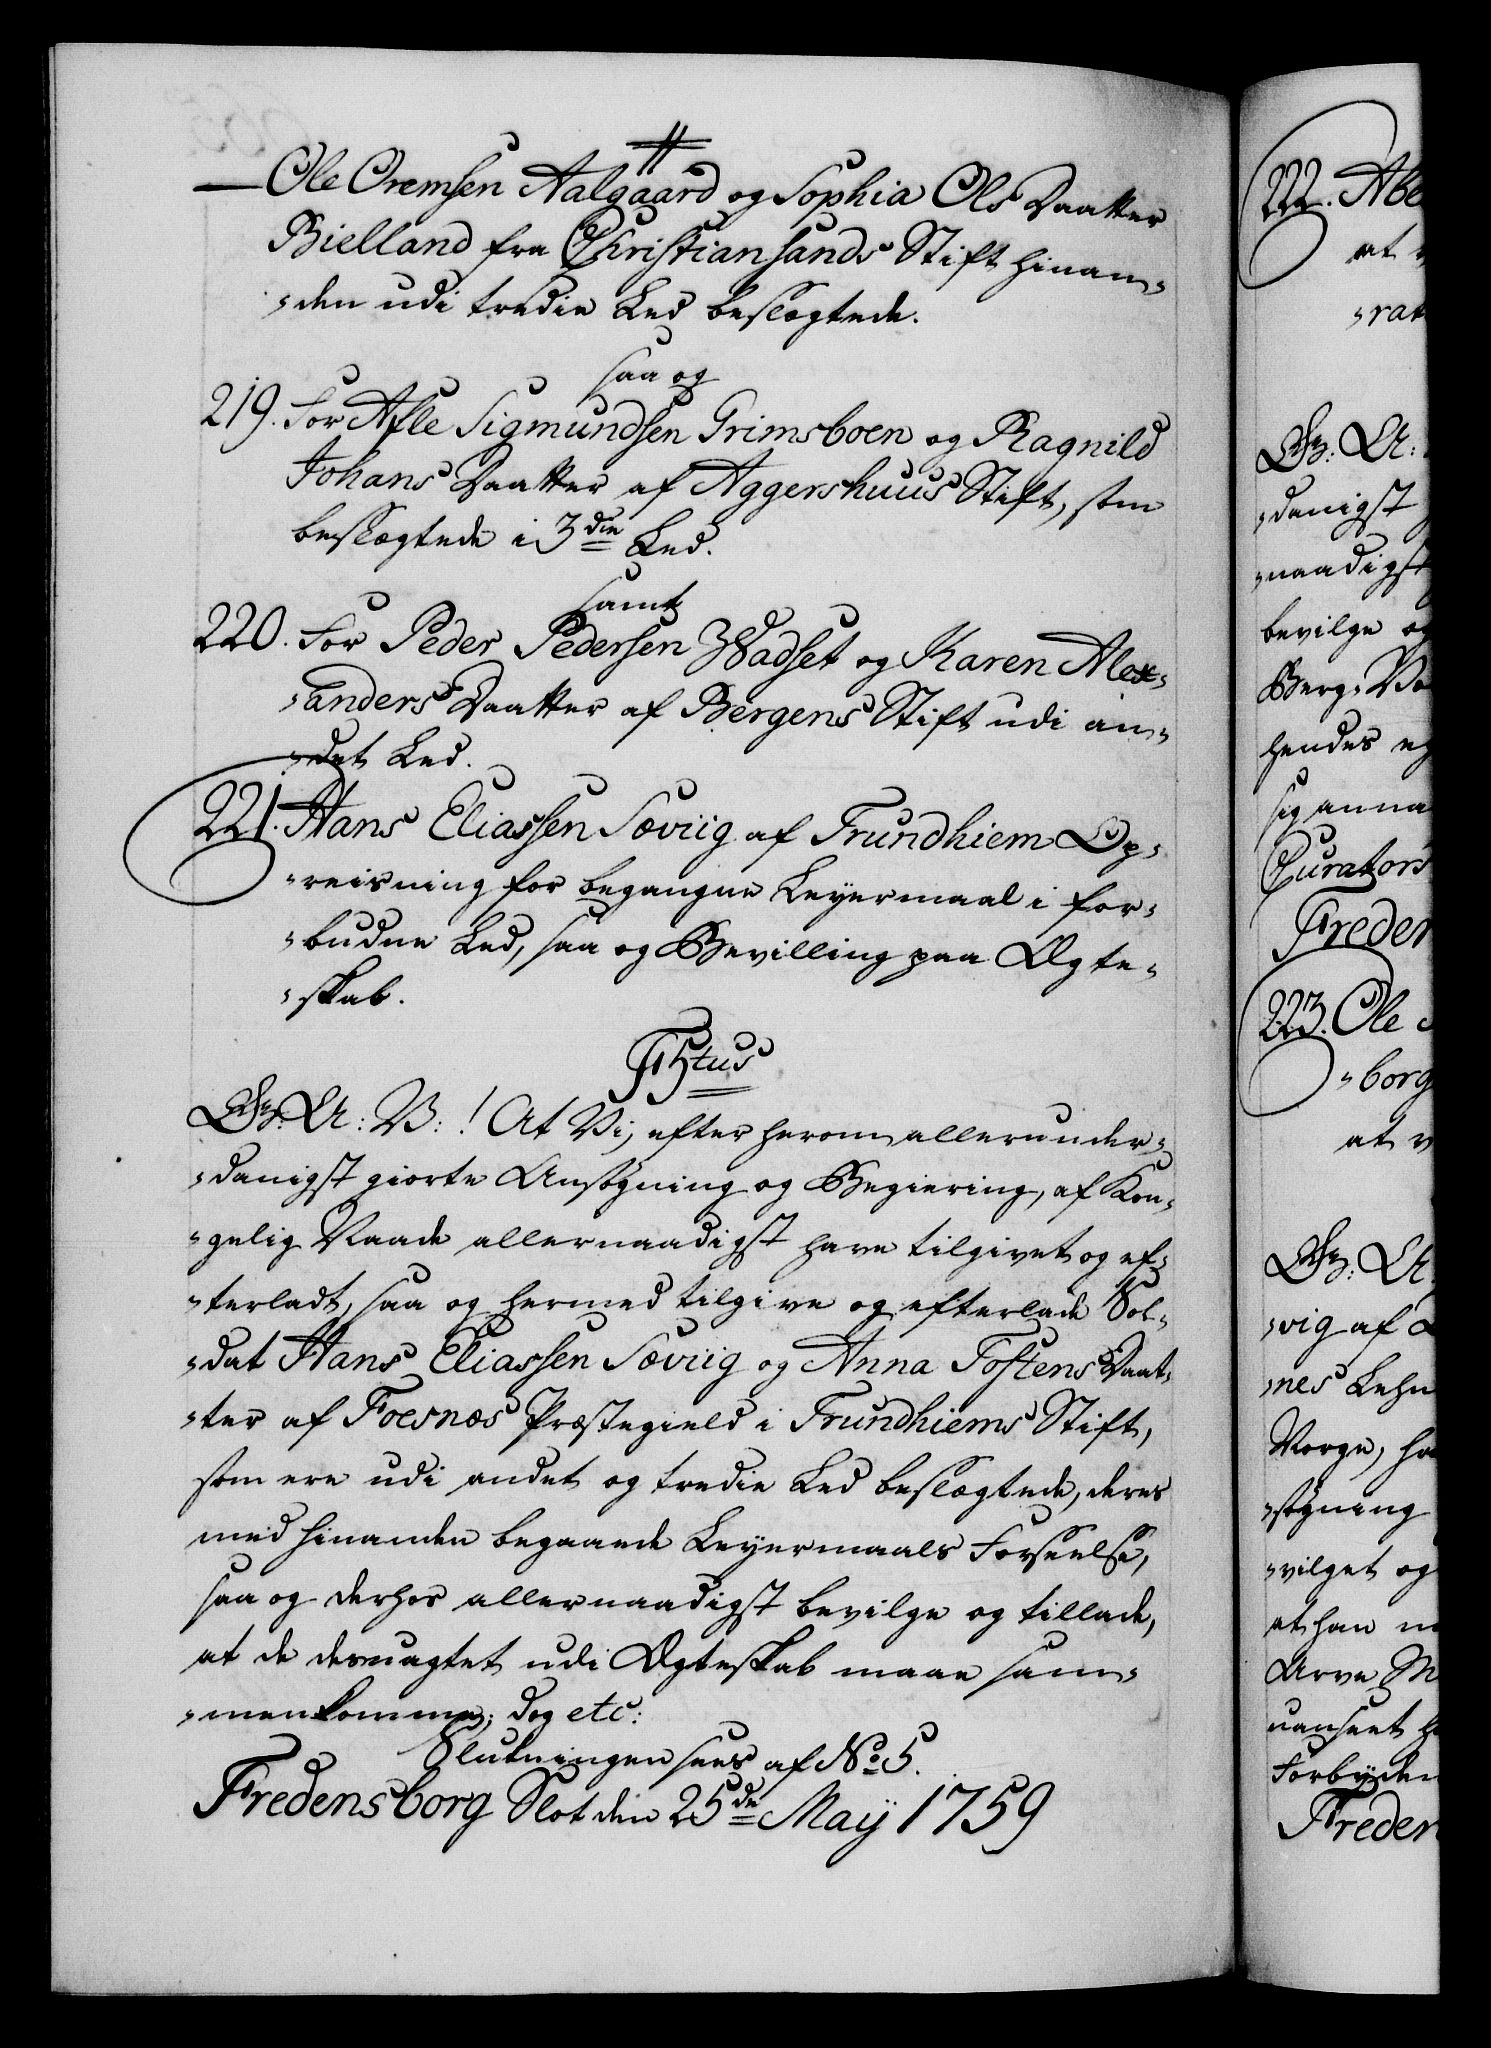 Ole Oremsen Aalgaard og Sophia Ols Daatter
Bielland fra Christiansands Stift hinan-
-den udi tredie Led beslægtede.
saa og
219. For Asle Sigmundsen Grimsboen og Ragnild
Johans Daatter af Aggershuus Stift, som
beslægtede i 3die Led.
samt
220. For Peder Pedersen Wadset og Karen Alex-
-anders Daatter af Bergens Stift udi an-
-det Led.
221. Hans Eliassen Sæviig af Trundhiem Op-
-reisning for begangne Leyermaal i for-
-budne Led, saa og Bevilling paa Ægte-
-skab.
F5tus
Gr: A: V: ! At Vi, efter herom allerunder-
-danigst giorte Ansøgning og Begiering, af Kon-
-gelig Naade allernaadigst have tilgivet og ef-
-terladt, saa og hermed tilgive og efterlade Sol-
-dat Hans Eliassen Sæviig og Anna Tostens Daat-
-ter af Foesnæs Præstegield i Trundhiems Stift,
som ere udi andet og tredie Led beslægtede, deres
med hinanden begaaede Leyermaals Forseelse,
saa og derhos allernaadigst bevilge og tillade,
at de desuagtet udi Ægteskab maae sam-
-menkomme; dog etc:
Slutningen sees af No 5.
Fredensborg Slot den 25de Maij 1759
222. Abe
at
-rat
Gr: A:
-danigst
-naadigst
bevilge og
Berg-
hendes
sig anna
Curators
Freden
223. Ole
-borg
at v
Gr: A
-vig af
-nes Lehn
Norge, ha
-søgning
-vilget og
at han
Arve M
uanseet
Forbyden
Freden